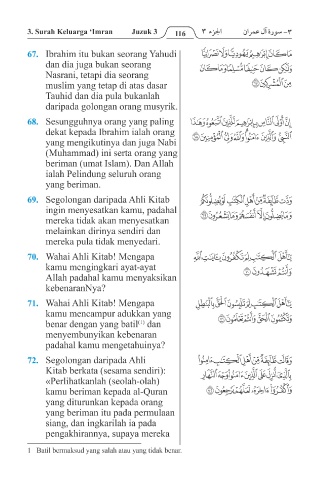 3. Surah Keluarga ‘Imran Juzuk 3 116 الجزء ٣ ٣- سورة آل عمران
67. Ibrahim itu bukan seorang Yahudi
dan dia juga bukan seorang
Nasrani, tetapi dia seorang
muslim yang tetap di atas dasar
Tauhid dan dia pula bukanlah
daripada golongan orang musyrik.
مَا كَانَ إِبْرَٰهِيمُ يَهُودِيًّا وَلَا نَصْرَانِيًّا
وَلَٰكِن كَانَ حَنِيفًا مُّسْلِمًا وَمَا كَانَ
مِنَ ٱلْمُشْرِكِينَ ٦٧
68. Sesungguhnya orang yang paling
dekat kepada Ibrahim ialah orang
yang mengikutinya dan juga Nabi
(Muhammad) ini serta orang yang
beriman (umat Islam). Dan Allah
ialah Pelindung seluruh orang
yang beriman.
إِنَّ أَوْلَى ٱلنَّاسِ بِإِبْرَٰهِيمَ لَلَّذِينَ ٱتَّبَعُوهُ وَهَٰذَا
ٱلنَّبِىُّ وَٱلَّذِينَ ءَامَنُوا۟ ۗ وَٱللَّهُ وَلِىُّ ٱلْمُؤْمِنِينَ ٦٨
69. Segolongan daripada Ahli Kitab
ingin menyesatkan kamu, padahal
mereka tidak akan menyesatkan
melainkan dirinya sendiri dan
mereka pula tidak menyedari.
وَدَّت طَّآئِفَةٌ مِّنْ أَهْلِ ٱلْكِتَٰبِ لَوْ يُضِلُّونَكُمْ
وَمَا يُضِلُّونَ إِلَّآ أَنفُسَهُمْ وَمَا يَشْعُرُونَ ٦٩
70. Wahai Ahli Kitab! Mengapa
kamu mengingkari ayat-ayat
Allah padahal kamu menyaksikan
kebenaranNya?
يَٰٓأَهْلَ ٱلْكِتَٰبِ لِمَ تَكْفُرُونَ بِـَٔايَٰتِ ٱللَّهِ
وَأَنتُمْ تَشْهَدُونَ ٧٠
71. Wahai Ahli Kitab! Mengapa
kamu mencampur adukkan yang
benar dengan yang batil(1) dan
menyembunyikan kebenaran
padahal kamu mengetahuinya?
يَٰٓأَهْلَ ٱلْكِتَٰبِ لِمَ تَلْبِسُونَ ٱلْحَقَّ بِٱلْبَٰطِلِ
وَتَكْتُمُونَ ٱلْحَقَّ وَأَنتُمْ تَعْلَمُونَ ٧١
72. Segolongan daripada Ahli
Kitab berkata (sesama sendiri):
«Perlihatkanlah (seolah-olah)
kamu beriman kepada al-Quran
yang diturunkan kepada orang
yang beriman itu pada permulaan
siang, dan ingkarilah ia pada
pengakhirannya, supaya mereka
وَقَالَت طَّآئِفَةٌ مِّنْ أَهْلِ ٱلْكِتَٰبِ ءَامِنُوا۟
بِٱلَّذِىٓ أُنزِلَ عَلَى ٱلَّذِينَ ءَامَنُوا۟ وَجْهَ ٱلنَّهَارِ
وَٱكْفُرُوٓا۟ ءَاخِرَهُۥ لَعَلَّهُمْ يَرْجِعُونَ ٧٢
1 Batil bermaksud yang salah atau yang tidak benar.